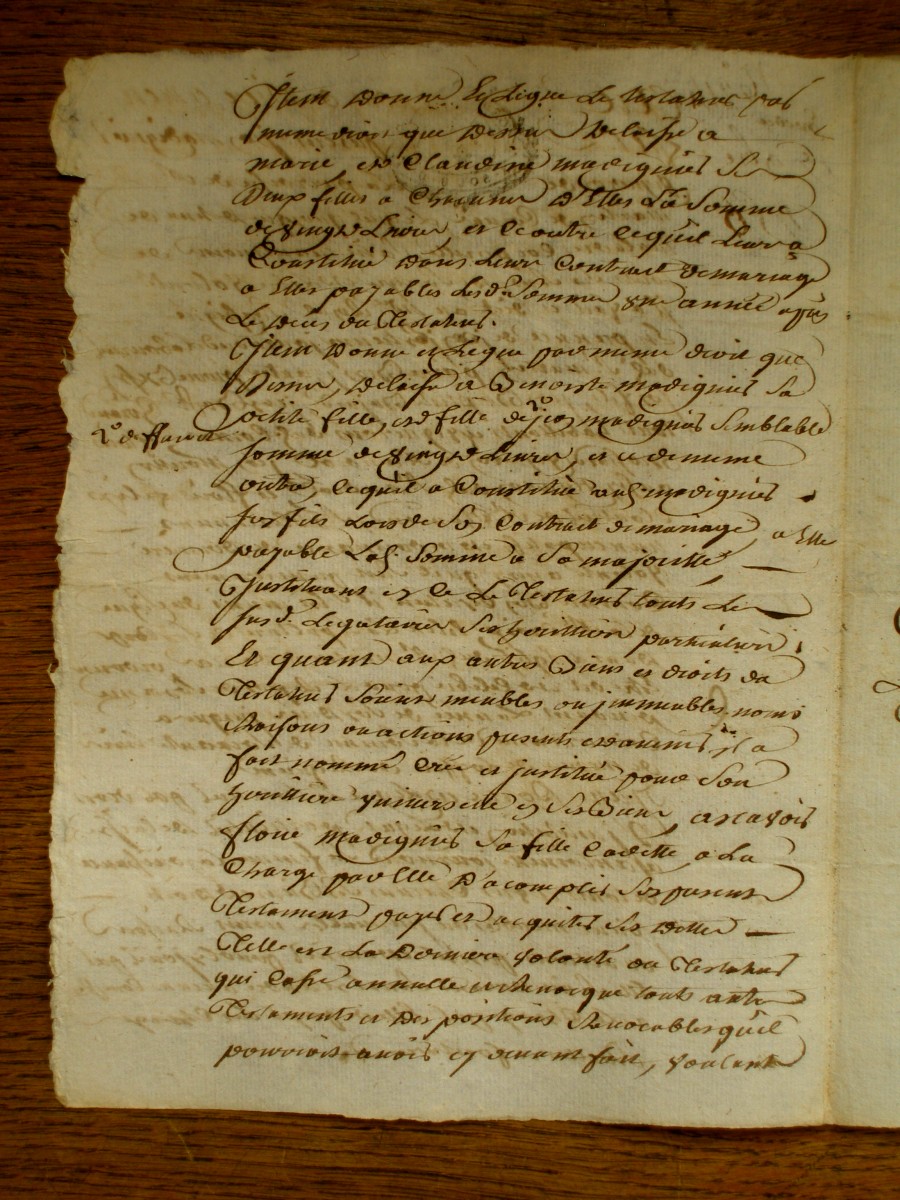 Item donne et legue le testateur par
meme droit que dessus delaisse a
marie, et Claudine madignier ses
deux filles a chacunne d'Elles La Somme
de vingt Livres, et ce outre ce qu'il Leur a
Constitué dans Leurs Contract de mariage
a Elles payables Lesd. Sommes une année apres
Le deces du Testateur.
Item donne et legue par meme droit que
dessus, delaisse a Benoiste madignier Sa
petite fille, et fille de madignier Semblable
r.o de
somme de vingt Livres, et ce de meme
outre, ce qu'il a Constitué aud. madignier
son fils Lors de Son Contract de mariage, a Elle
payable Lad. Somme a Sa majorité
Instituant en ce Le Testateur touts Les
susd. Legataires ses heritiers particuliers.
Et quant aux autres Biens et droits du
Testateur Soient meubles ou immeubles noms
Raisons ou actions presents et avenirs, il a
fait nommé Créé et institué pour Son
heritiere universelle en Ses Biens, a scavoir
floire madignier Sa fille Cadette, a La
Charge par Elle D'acomplir Son present
Testament payer et acquiter Ses dettes
Telle est La Derniere volonté du Testateur
qui Casse annulle et Revocque touts autres
Testaments et Dispositions Revocables qu'il
pourroit avoir cy devant fait, voulant